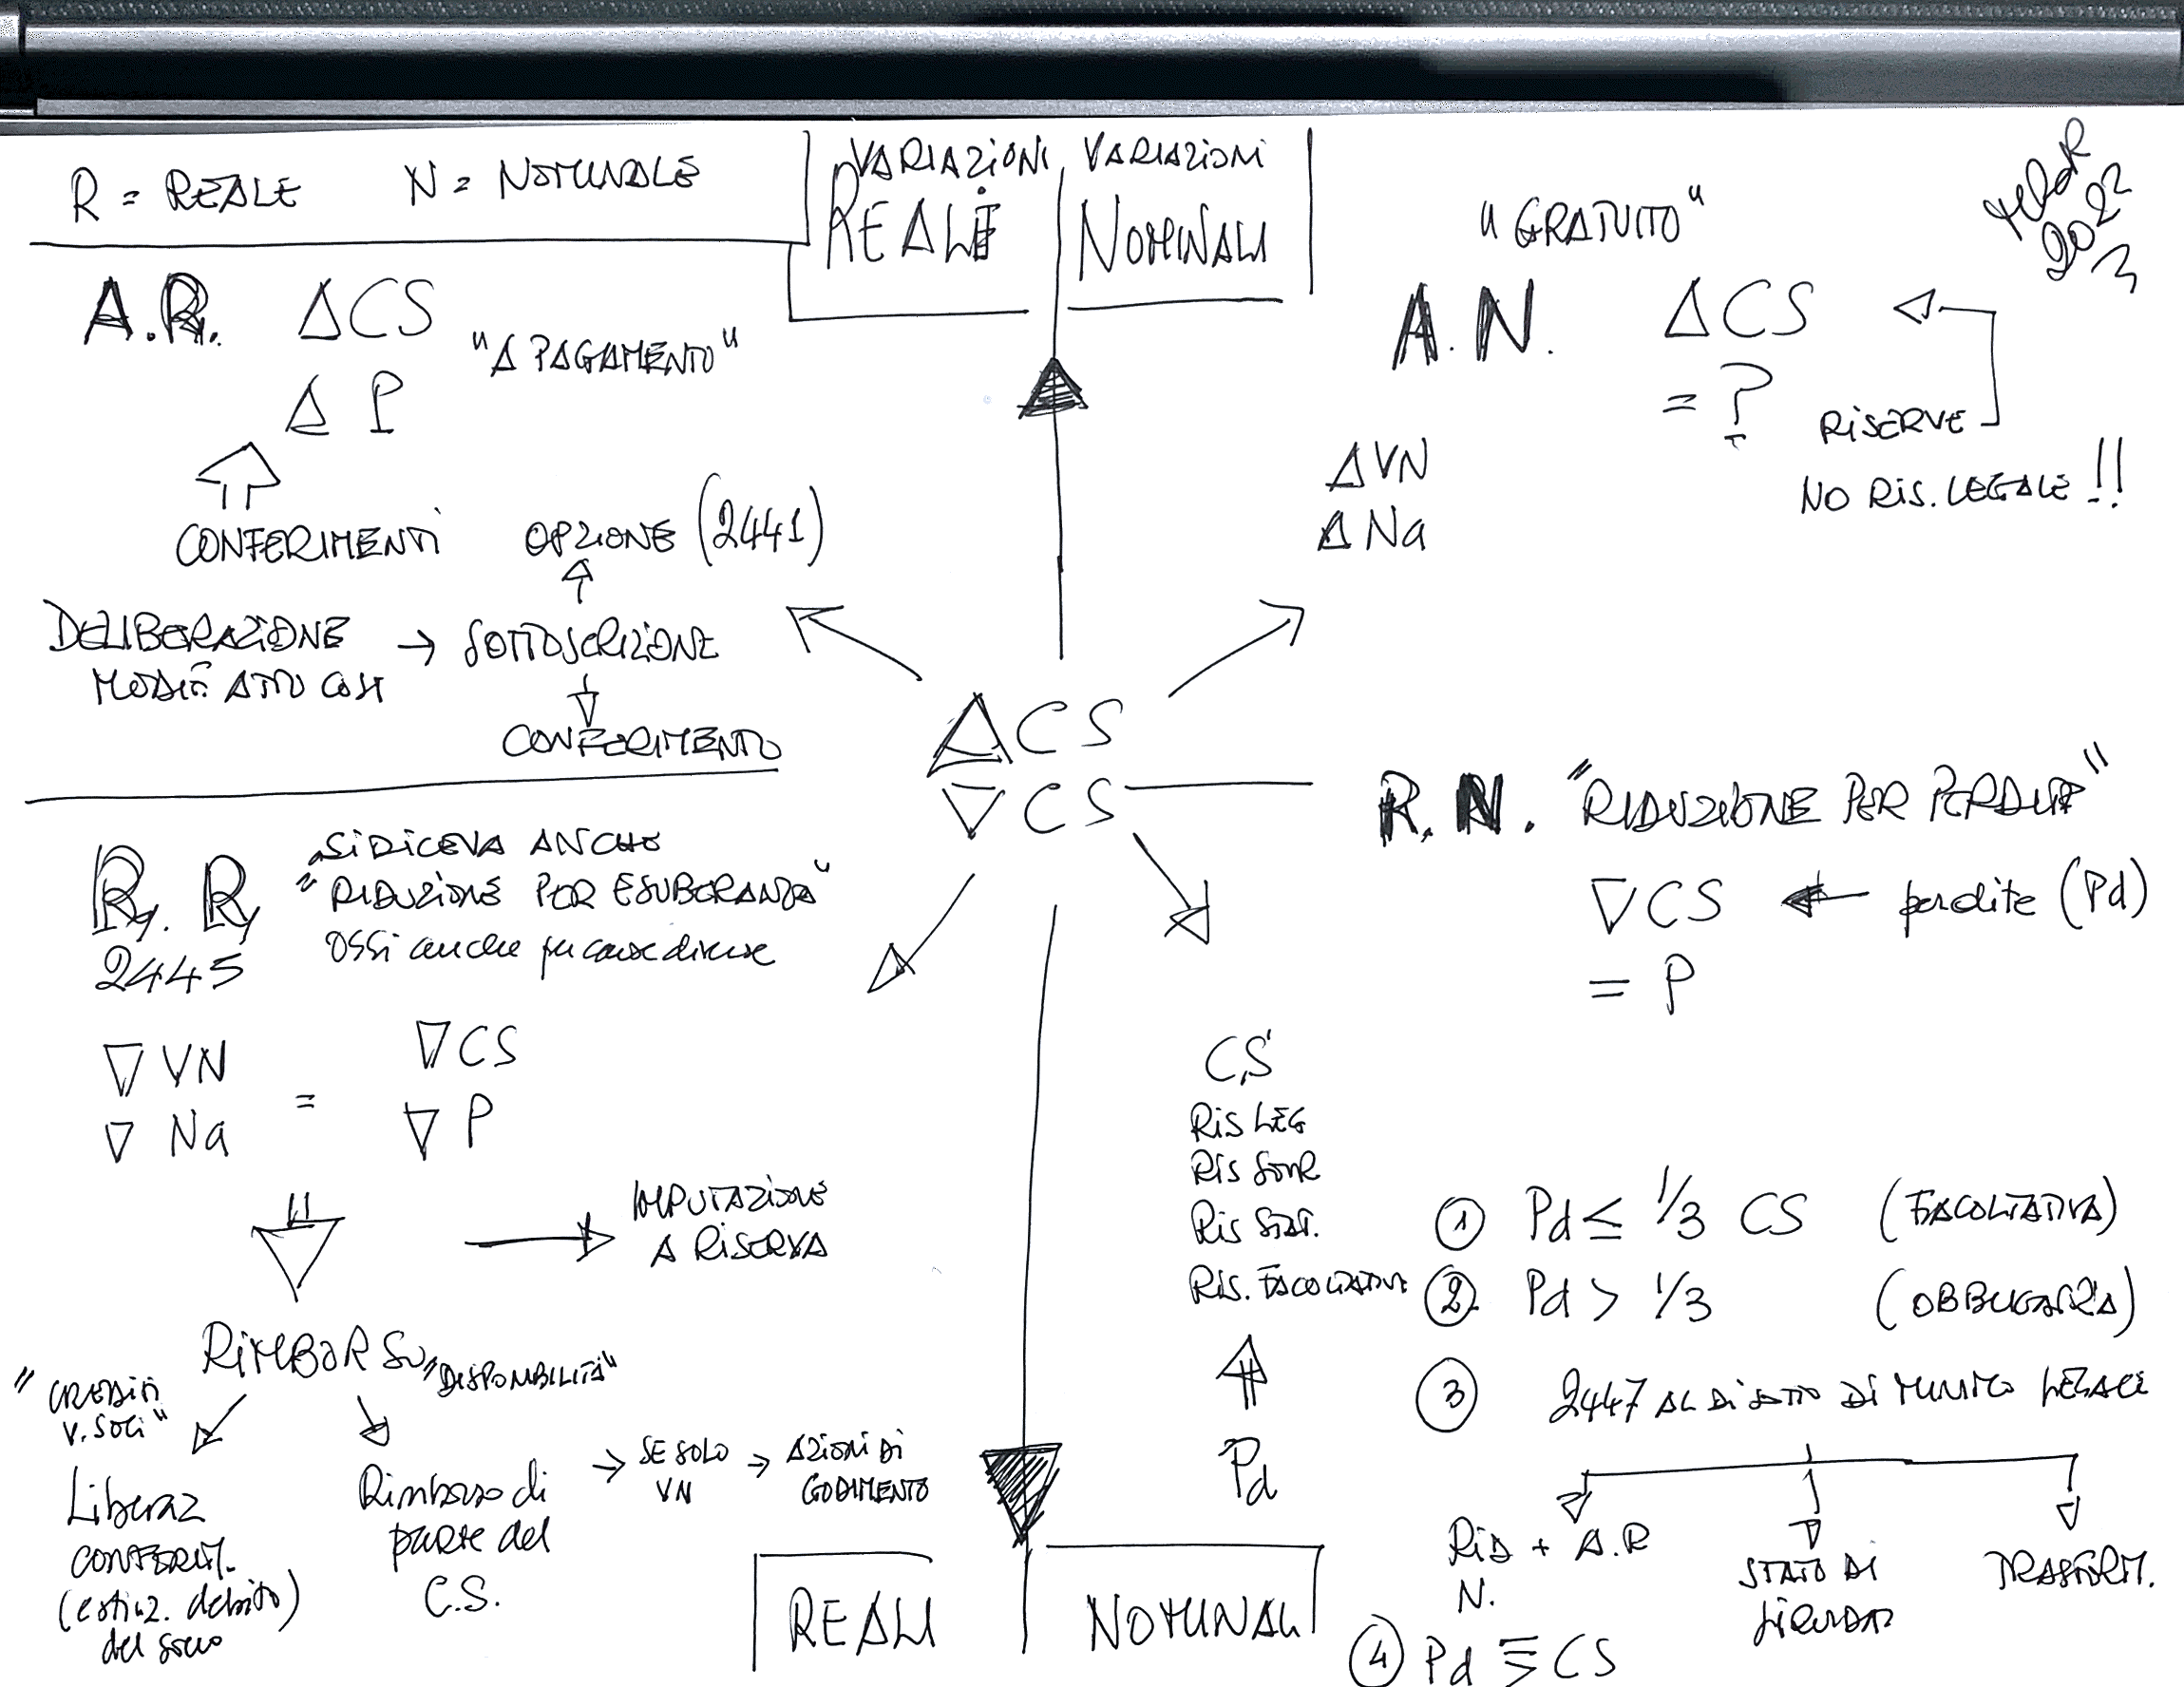 R = REALE N = NOMINALE
VARIAZIONI VARIAZIONI
REALI NOMINALI
A.R. ΔCS
"A PAGAMENTO"
Δ P
CONFERIMENTI
OPZIONE (2441)
DELIBERAZIONE → SOTTOSCRIZIONE
MODIF ATTO COST
CONFERIMENTO
"GRATUITO"
2022
A.N. ΔCS
= P
RISERVE
NO RIS. LEGALE !!
Δ VN
Δ Na
ΔCS
∇CS
R. R.
2445
SI DICEVA ANCHE
"RIDUZIONE PER ESUBERANZA"
OSSI anche per cause diverse
∇ VN
∇ Na
=
∇ CS
∇ P
IMPUTAZIONE
A RISERVA
RIMBORSO
"CREDITI
V. SOCI"
"DISPONIBILITÀ"
Liberaz
CONFERIM.
(estinz. debito)
del socio
Rimborso di
parte del
C.S.
→ SE SOLO
VN
→ AZIONI DI
GODIMENTO
R. N. "RIDUZIONE PER PERDITA"
∇ CS ← perdite (Pd)
= P
CS
RIS LEG
RIS STAT.
RIS. FACOLTATIVE
Pd
① Pd ≤ 1/3 CS (FACOLTATIVA)
② Pd > 1/3 (OBBLIGATORIA)
③ 2447 AL DI SOTTO DI MINIMO LEGALE
RID + A.R
N.
STATO DI
LIQUIDAZ
TRASFORM.
④ Pd ≧ CS
REALI NOMINALI